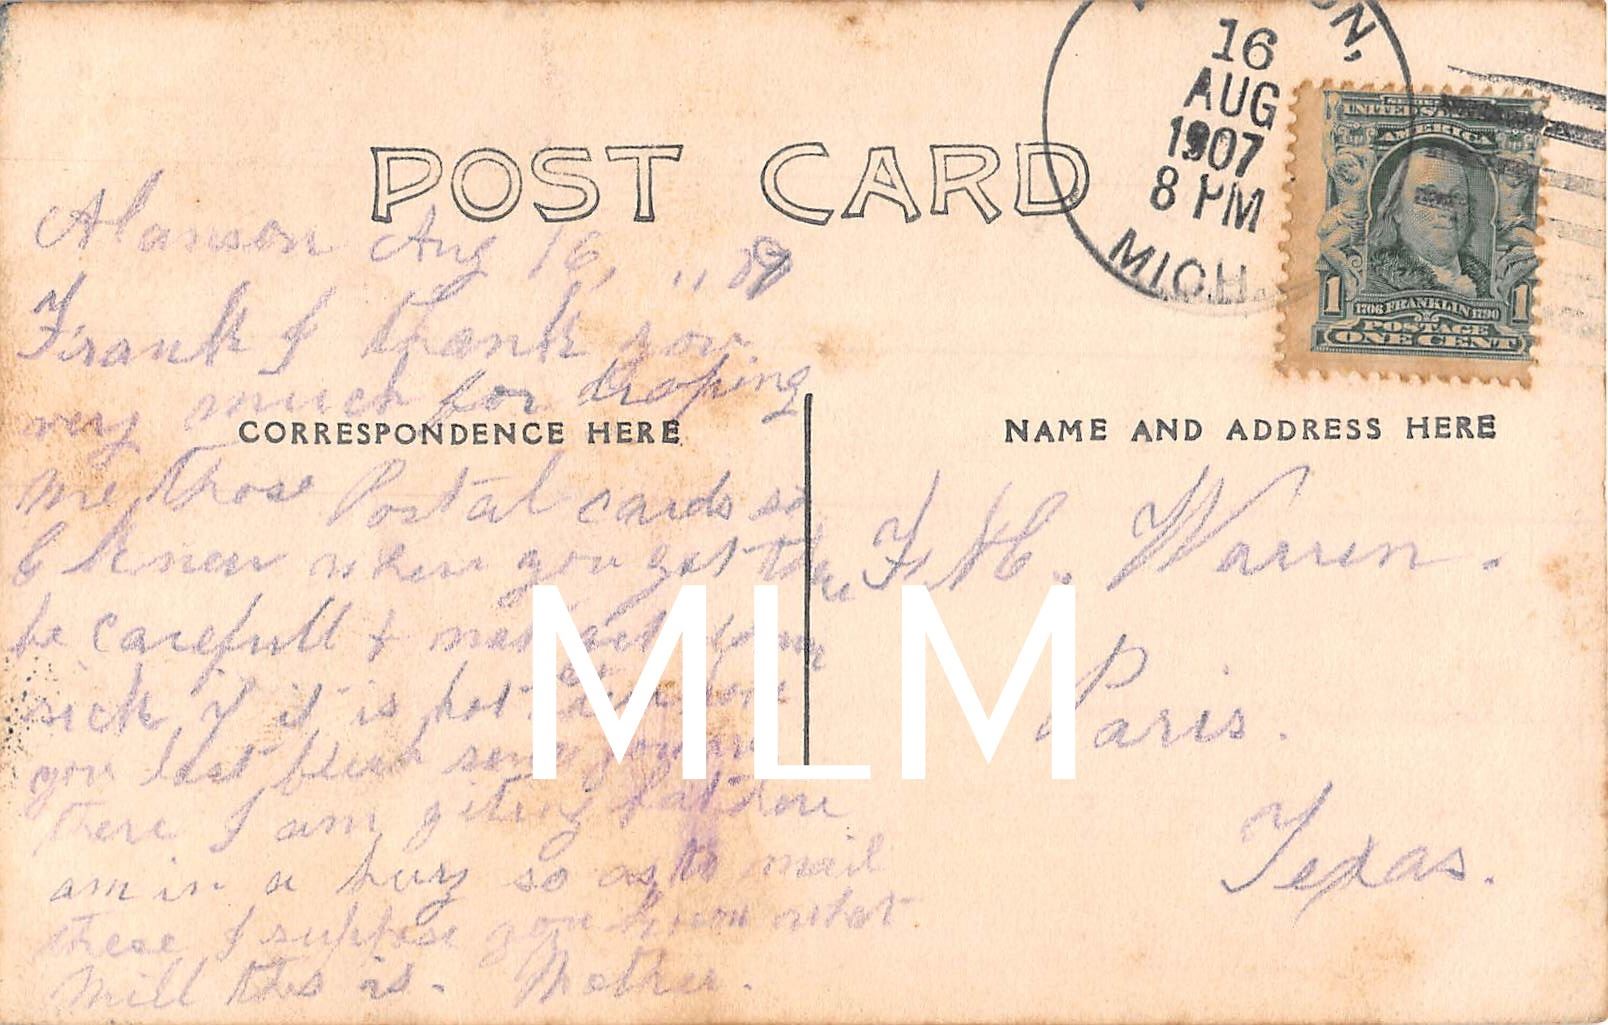 ON,
16
AUG
1907
8 PM
MICH.
UNITED STATES
AMERICA
1 1706 FRANKLIN 1790 1
POSTAGE
ONE CENT
POST CARD
Alanson Aug 16, "
Frank I thank you
very much for droping
CORRESPONDENCE HERE
me those Postal cards so
I knew when you got there
be carefull & not get
sick if it is hot
you last
there I am giting fat
am in a hury so as to mail
these I suppose you know what
Mill this is. Mother.
NAME AND ADDRESS HERE
F. H. Warren.
Paris.
Texas.
MLM